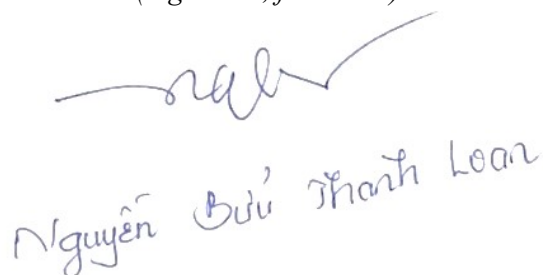 Nguyễn Bửu Thanh Loan